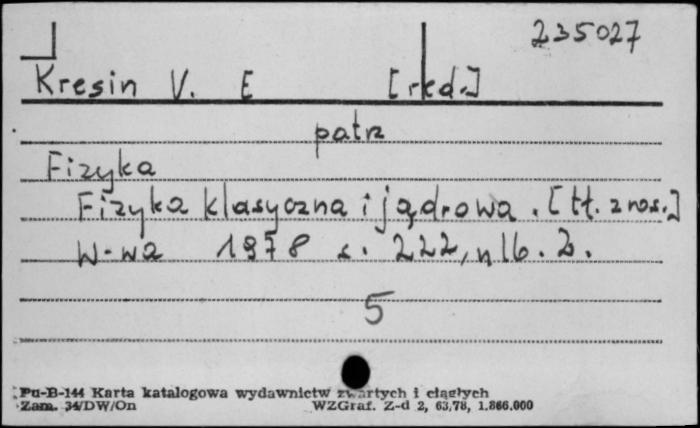 235027
Kresin V. E [red.]
patrz
Fizyka
Fizyka klasyczna i jądrowa. [tł. z ros.]
W-wa 1978 s. 222, nlb. 2.
5
Pu-B-144 Karta katalogowa wydawnictw zwartych i ciągłych
Zam. 34/DW/On WZGraf. Z-d 2, 63,78, 1.866.000